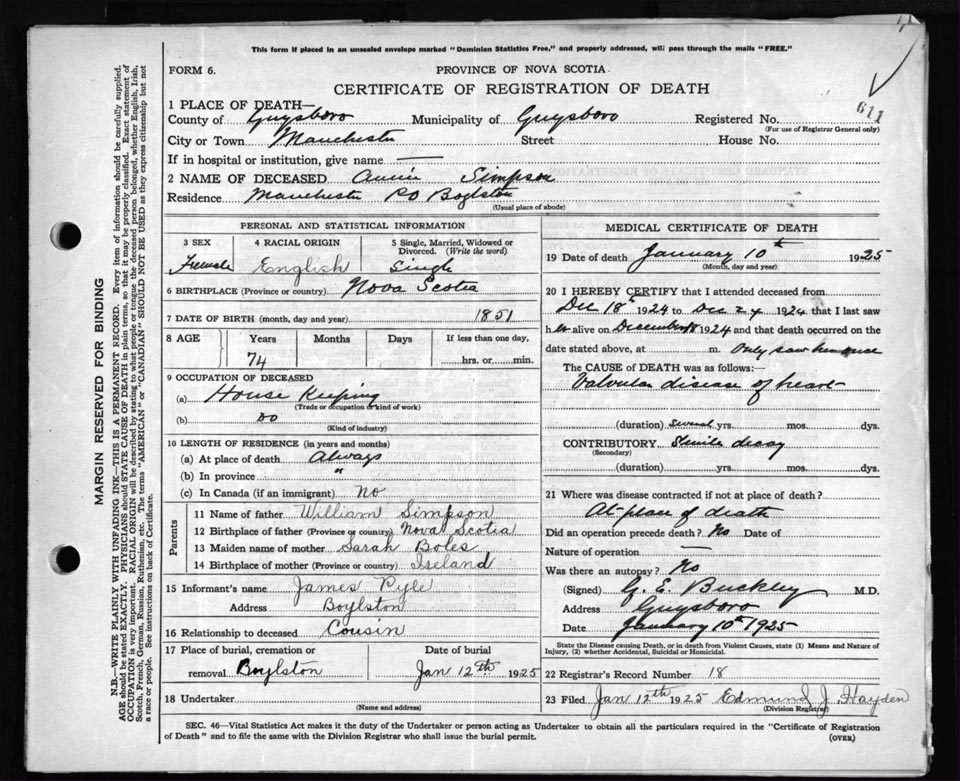 This form if placed in an unsealed envelope marked "Dominion Statistics Free," and properly addressed, will pass through the mails "FREE."
FORM 6. PROVINCE OF NOVA SCOTIA
CERTIFICATE OF REGISTRATION OF DEATH
611
1 PLACE OF DEATH—
County of Guysboro Municipality of Guysboro Registered No.
(For use of Registrar General only)
City or Town Manchester Street House No.
If in hospital or institution, give name —
2 NAME OF DECEASED Annie Simpson
Residence Manchester PO Boylston
(Usual place of abode)
PERSONAL AND STATISTICAL INFORMATION
3 SEX 4 RACIAL ORIGIN 5 Single, Married, Widowed or Divorced. (Write the word)
Female English Single
6 BIRTHPLACE (Province or country) Nova Scotia
7 DATE OF BIRTH (month, day and year) 1851
8 AGE Years Months Days If less than one day,
74 hrs. or min.
9 OCCUPATION OF DECEASED
(a) House Keeping
(Trade or occupation or kind of work)
(b) Do
(Kind of industry)
10 LENGTH OF RESIDENCE (in years and months)
(a) At place of death Always
(b) In province "
(c) In Canada (if an immigrant) No
Parents
11 Name of father William Simpson
12 Birthplace of father (Province or country) Nova Scotia
13 Maiden name of mother Sarah Boles
14 Birthplace of mother (Province or country) Ireland
15 Informant's name James Pyle
Address Boylston
16 Relationship to deceased Cousin
17 Place of burial, cremation or removal Boylston Date of burial Jan 12th 1925
18 Undertaker
(Name and address)
MEDICAL CERTIFICATE OF DEATH
19 Date of death January 10th 1925
(Month, day and year)
20 I HEREBY CERTIFY that I attended deceased from
Dec 18th 1924 to Dec 24 1924 that I last saw
her alive on December 18 1924 and that death occurred on the
date stated above, at m. Only saw her once
The CAUSE of DEATH was as follows:—
Valvular disease of heart
(duration) Several yrs. mos. dys.
CONTRIBUTORY. Senile decay
(Secondary)
(duration) yrs. mos. dys.
21 Where was disease contracted if not at place of death?
At place of death
Did an operation precede death? No Date of
Nature of operation —
Was there an autopsy? No
(Signed) G. E. Buckley M.D.
Address Guysboro
Date January 10th 1925
State the Disease causing Death, or in death from Violent Causes, state (1) Means and Nature of Injury, (2) whether Accidental, Suicidal or Homicidal.
22 Registrar's Record Number 18
23 Filed Jan 12th 1925 Edmund J. Hayden
(Division Registrar)
SEC. 46—Vital Statistics Act makes it the duty of the Undertaker or person acting as Undertaker to obtain all the particulars required in the "Certificate of Registration
of Death" and to file the same with the Division Registrar who shall issue the burial permit.
(OVER)
MARGIN RESERVED FOR BINDING
N.B.—WRITE PLAINLY WITH UNFADING INK—THIS IS A PERMANENT RECORD. Every item of information should be carefully supplied.
AGE should be stated EXACTLY. PHYSICIANS should STATE CAUSE OF DEATH in plain terms, so that it may be properly classified. Exact statement of
OCCUPATION is very important. RACIAL ORIGIN will be described by stating to what people or tongue the deceased person belonged, whether English, Irish,
Scotch, French, German, Russian, Ruthenian, etc. The terms "AMERICAN" or "CANADIAN" SHOULD NOT BE USED as they express citizenship but not
a race or people. See instructions on back of Certificate.